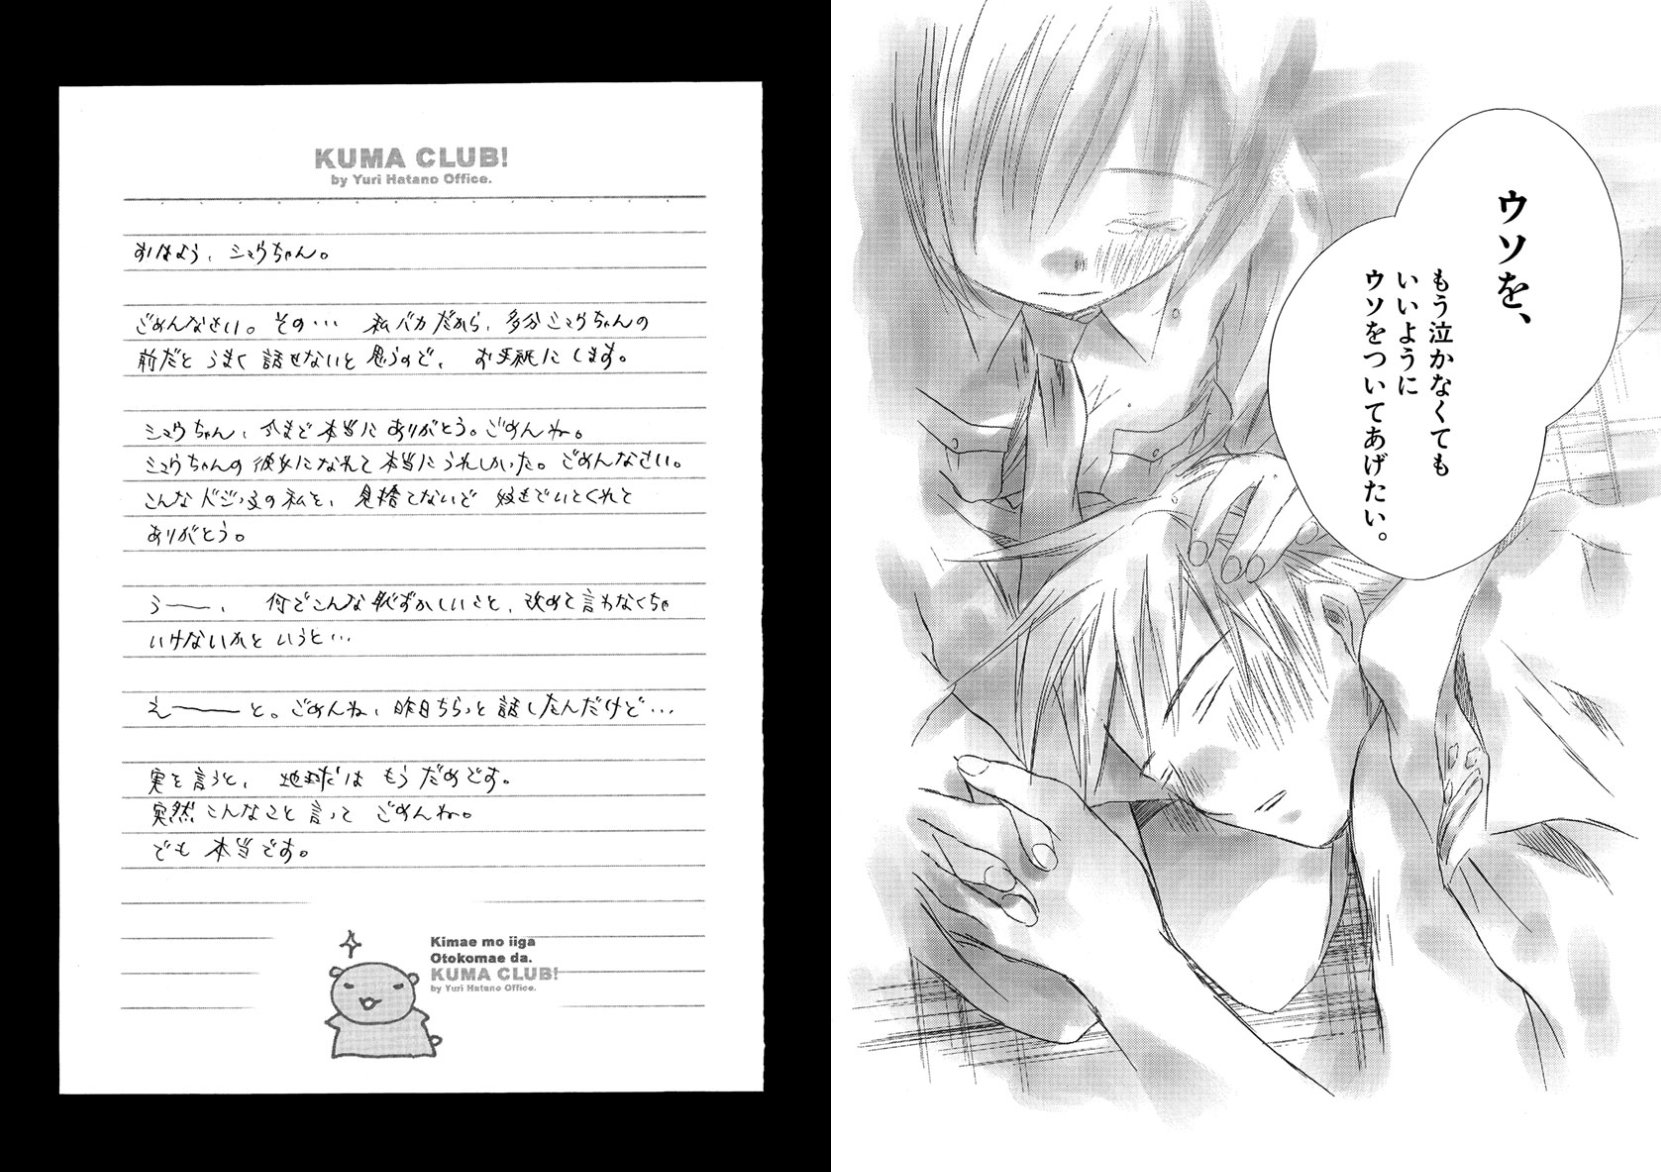 KUMA CLUB!
by Yuri Hatano Office.
おはよう、シュウちゃん。
ごめんなさい。その… 私バカだから、多分シュウちゃんの
前だと うまく 話せないと 思うので、 お手紙に します。
シュウちゃん、今まで 本当に ありがとう。ごめんね。
シュウちゃんの 彼女になれて 本当に うれしかった。ごめんなさい。
こんな ドジっ娘の私を、見捨てないで していてくれて
ありがとう。
う――、 何でこんな 恥ずかしいこと、改めて 言わなくちゃ
いけないかと いうと…
え――と。ごめんね、昨日ちらっと 話したんだけど…
実を言うと、 地球は もう だめです。
突然 こんなこと 言って ごめんね。
でも 本当です。
Kimae mo iiga
Otokomae da.
KUMA CLUB!
by Yuri Hatano Office.
ウソを、
もう泣かなくても
いいように
ウソをついてあげたい。